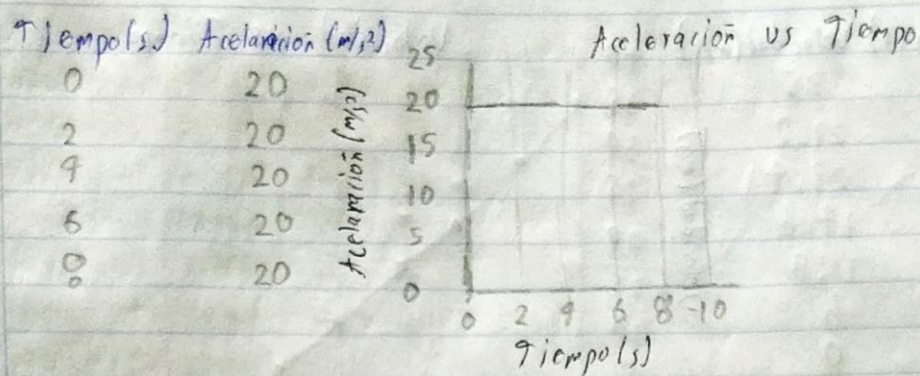 Tiempo(s) Acelarición (m/s²)
0 20
2 20
4 20
6 20
8 20
Aceleración vs Tiempo
Acelaración (m/s²)
25
20
15
10
5
0
0 2 4 6 8 10
Tiempo(s)